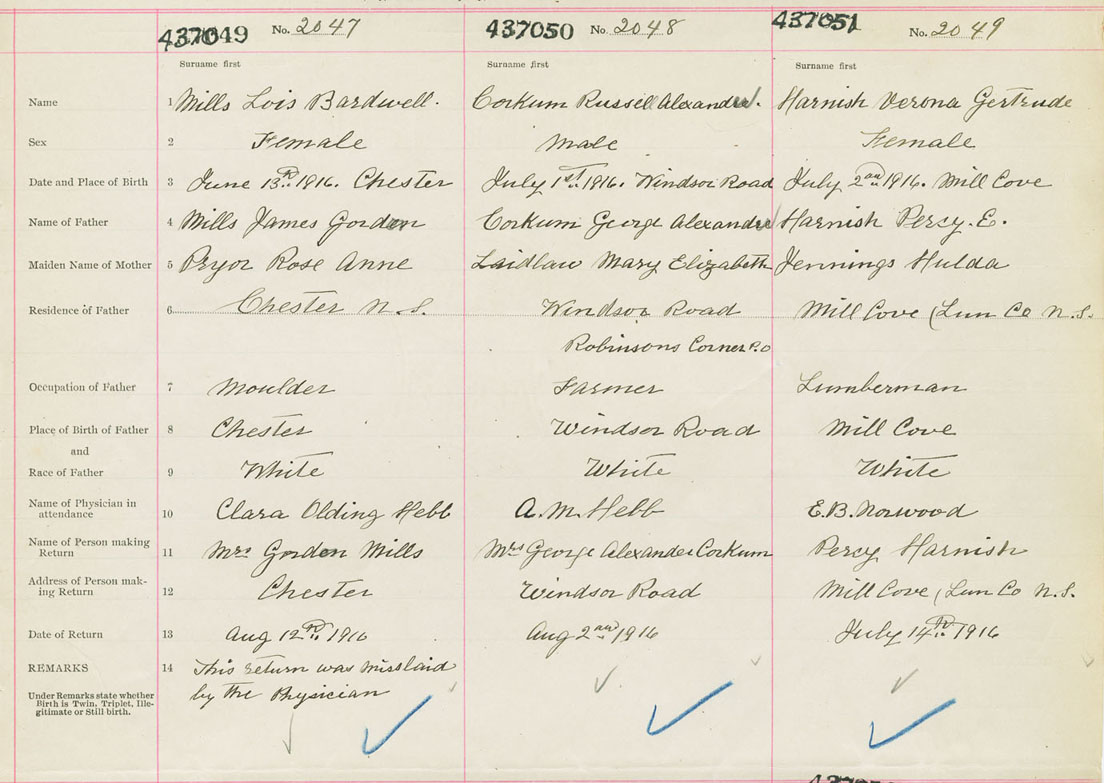 437049 No. 2047 437050 No. 2048 437051 No. 2049
Surname first Surname first Surname first
Name 1 Mills Lois Bardwell. Corkum Russell Alexander. Harnish Verona Gertrude
Sex 2 Female Male Female
Date and Place of Birth 3 June 13th 1916. Chester July 1st 1916. Windsor Road July 2nd 1916. Mill Cove
Name of Father 4 Mills James Gordon Corkum George Alexander Harnish Percy. E.
Maiden Name of Mother 5 Pryor Rose Anne Laidlaw Mary Elizabeth Jennings Hulda
Residence of Father 6 Chester N.S. Windsor Road Mill Cove (Lun Co N.S.
Robinsons Corner P.O
Occupation of Father 7 Moulder Farmer Lumberman
Place of Birth of Father 8 Chester Windsor Road Mill Cove
and
Race of Father 9 White White White
Name of Physician in
attendance 10 Clara Olding Hebb A. M. Hebb E. B. Norwood
Name of Person making
Return 11 Mrs Gordon Mills Mrs George Alexander Corkum Percy Harnish
Address of Person mak-
ing Return 12 Chester Windsor Road Mill Cove (Lun Co N.S.
Date of Return 13 Aug 12th 1916 Aug 2nd 1916 July 14th 1916
REMARKS 14 This return was misslaid
by the Physician
Under Remarks state whether
Birth is Twin, Triplet, Ille-
gitimate or Still birth.